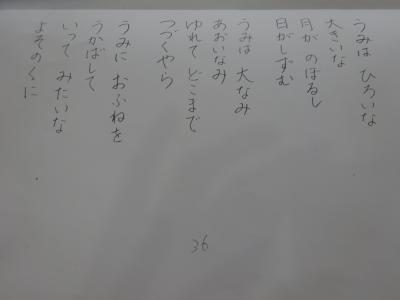 うみは ひろいな
大きいな
月が のぼるし
日がしずむ
うみは 大なみ
あおいなみ
ゆれて どこまで
つづくやら
うみに おふねを
うかばして
いって みたいな
よそのくに
36